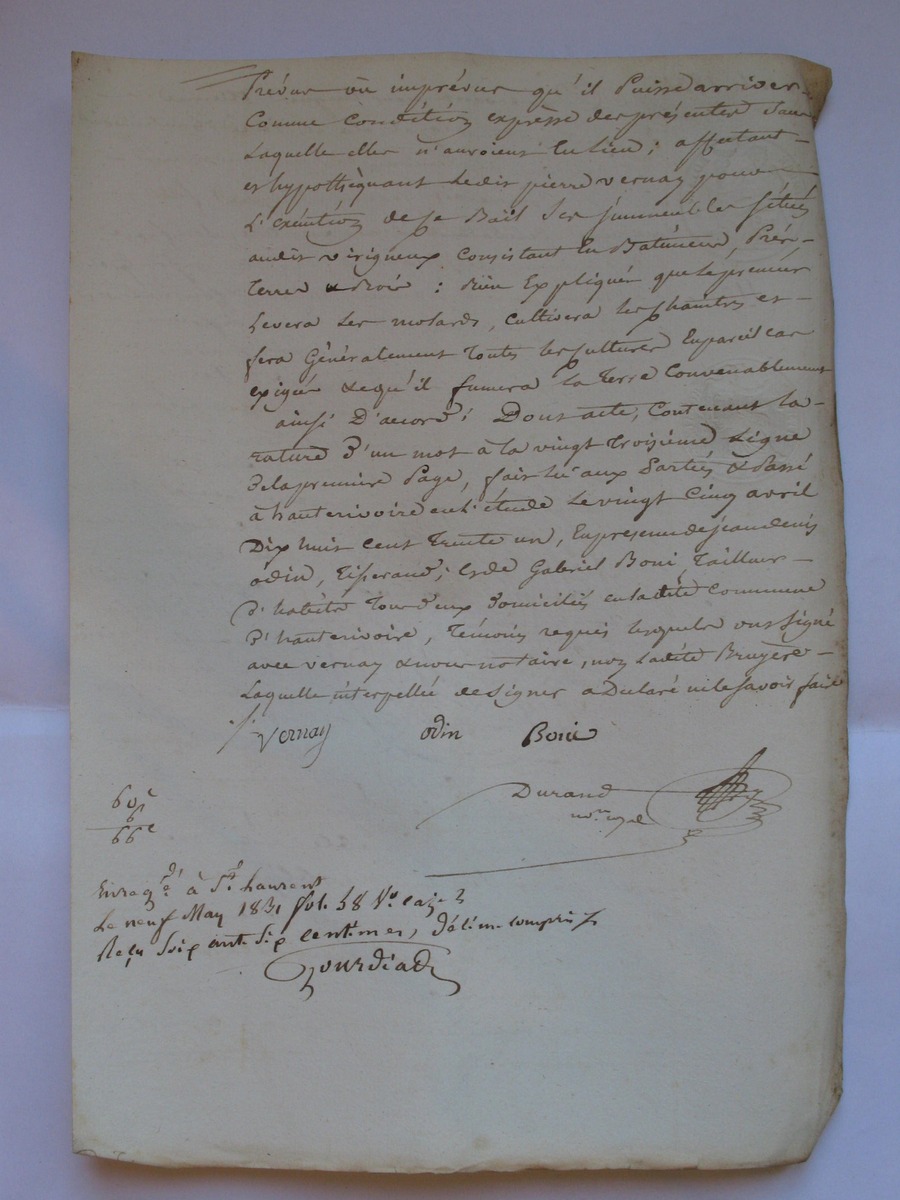 Prévus ou imprévus qu'il Puisse arriver
Comme Condition expresse des présentes Sans
Laquelle elles n'auroient Eu Lieu ; affectant
et hypothéquant Ledit pierre vernay pour
L'exécution de ce Bail Ses immeubles Situés
audit virigneux Consistant En Batiments, Prés,
Terres & Bois : Bien Expliqué que Le preneur
Levera Les motards, Cultivera Les chaintres et
fera Généralement Toutes Les cultures En pareil cas
exigées & qu'il fumera La Terre Convenablement
ainsi D'accord ; Dont acte, Contenant La
rature D'un mot à La vingt Troisième Ligne
De La première Page, fait Lu aux Parties & Passé
à hauterivoire en L'étude Le vingt Cinq avril
Dix huit Cent Trente un, En présence de jean denis
odin, Tisserand, et de Gabriel Boni Tailleur
D'habits Tous Deux Domiciliés en La dite Commune
D'hauterivoire, Témoins requis Lesquels ont Signé
avec vernay & nous notaire, non Ladite Bruyère
Laquelle interpellée de Signer a Déclaré ne le Savoir faire
Vernay odin Boni
Durand
no.re royal
60c
6
66c
Enrag.é à St. Laurent
Le neuf May 1831 fol. 58 Vo. case 2
Reçu Soixante Six Centimes, Décime compris